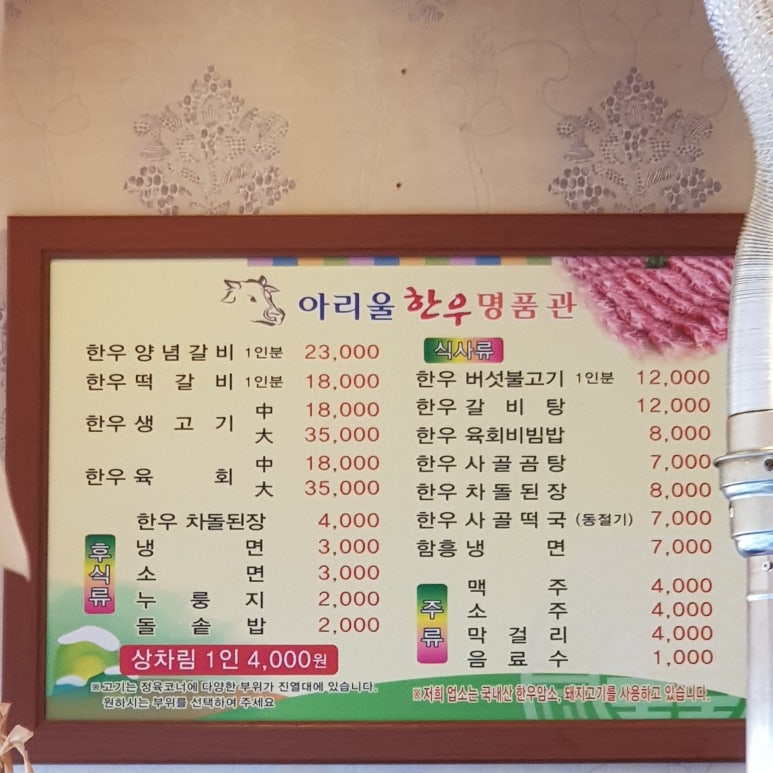 아리울 한우 명품관
한우 양념갈비 1인분 23,000
한우 떡갈비 1인분 18,000
한우 생고기 中 18,000
大 35,000
한우 육회 中 18,000
大 35,000
후식류
한우 차돌된장 4,000
냉면 3,000
소면 3,000
누룽지 2,000
돌솥밥 2,000
상차림 1인 4,000원
※고기는 정육코너에 다양한 부위가 진열대에 있습니다.
원하시는 부위를 선택하여 주세요
식사류
한우 버섯불고기 1인분 12,000
한우 갈비탕 12,000
한우 육회비빔밥 8,000
한우 사골곰탕 7,000
한우 차돌된장 8,000
한우 사골떡국 (동절기) 7,000
함흥냉면 7,000
주류
맥주 4,000
소주 4,000
막걸리 4,000
음료수 1,000
※저희 업소는 국내산 한우암소, 돼지고기를 사용하고 있습니다.